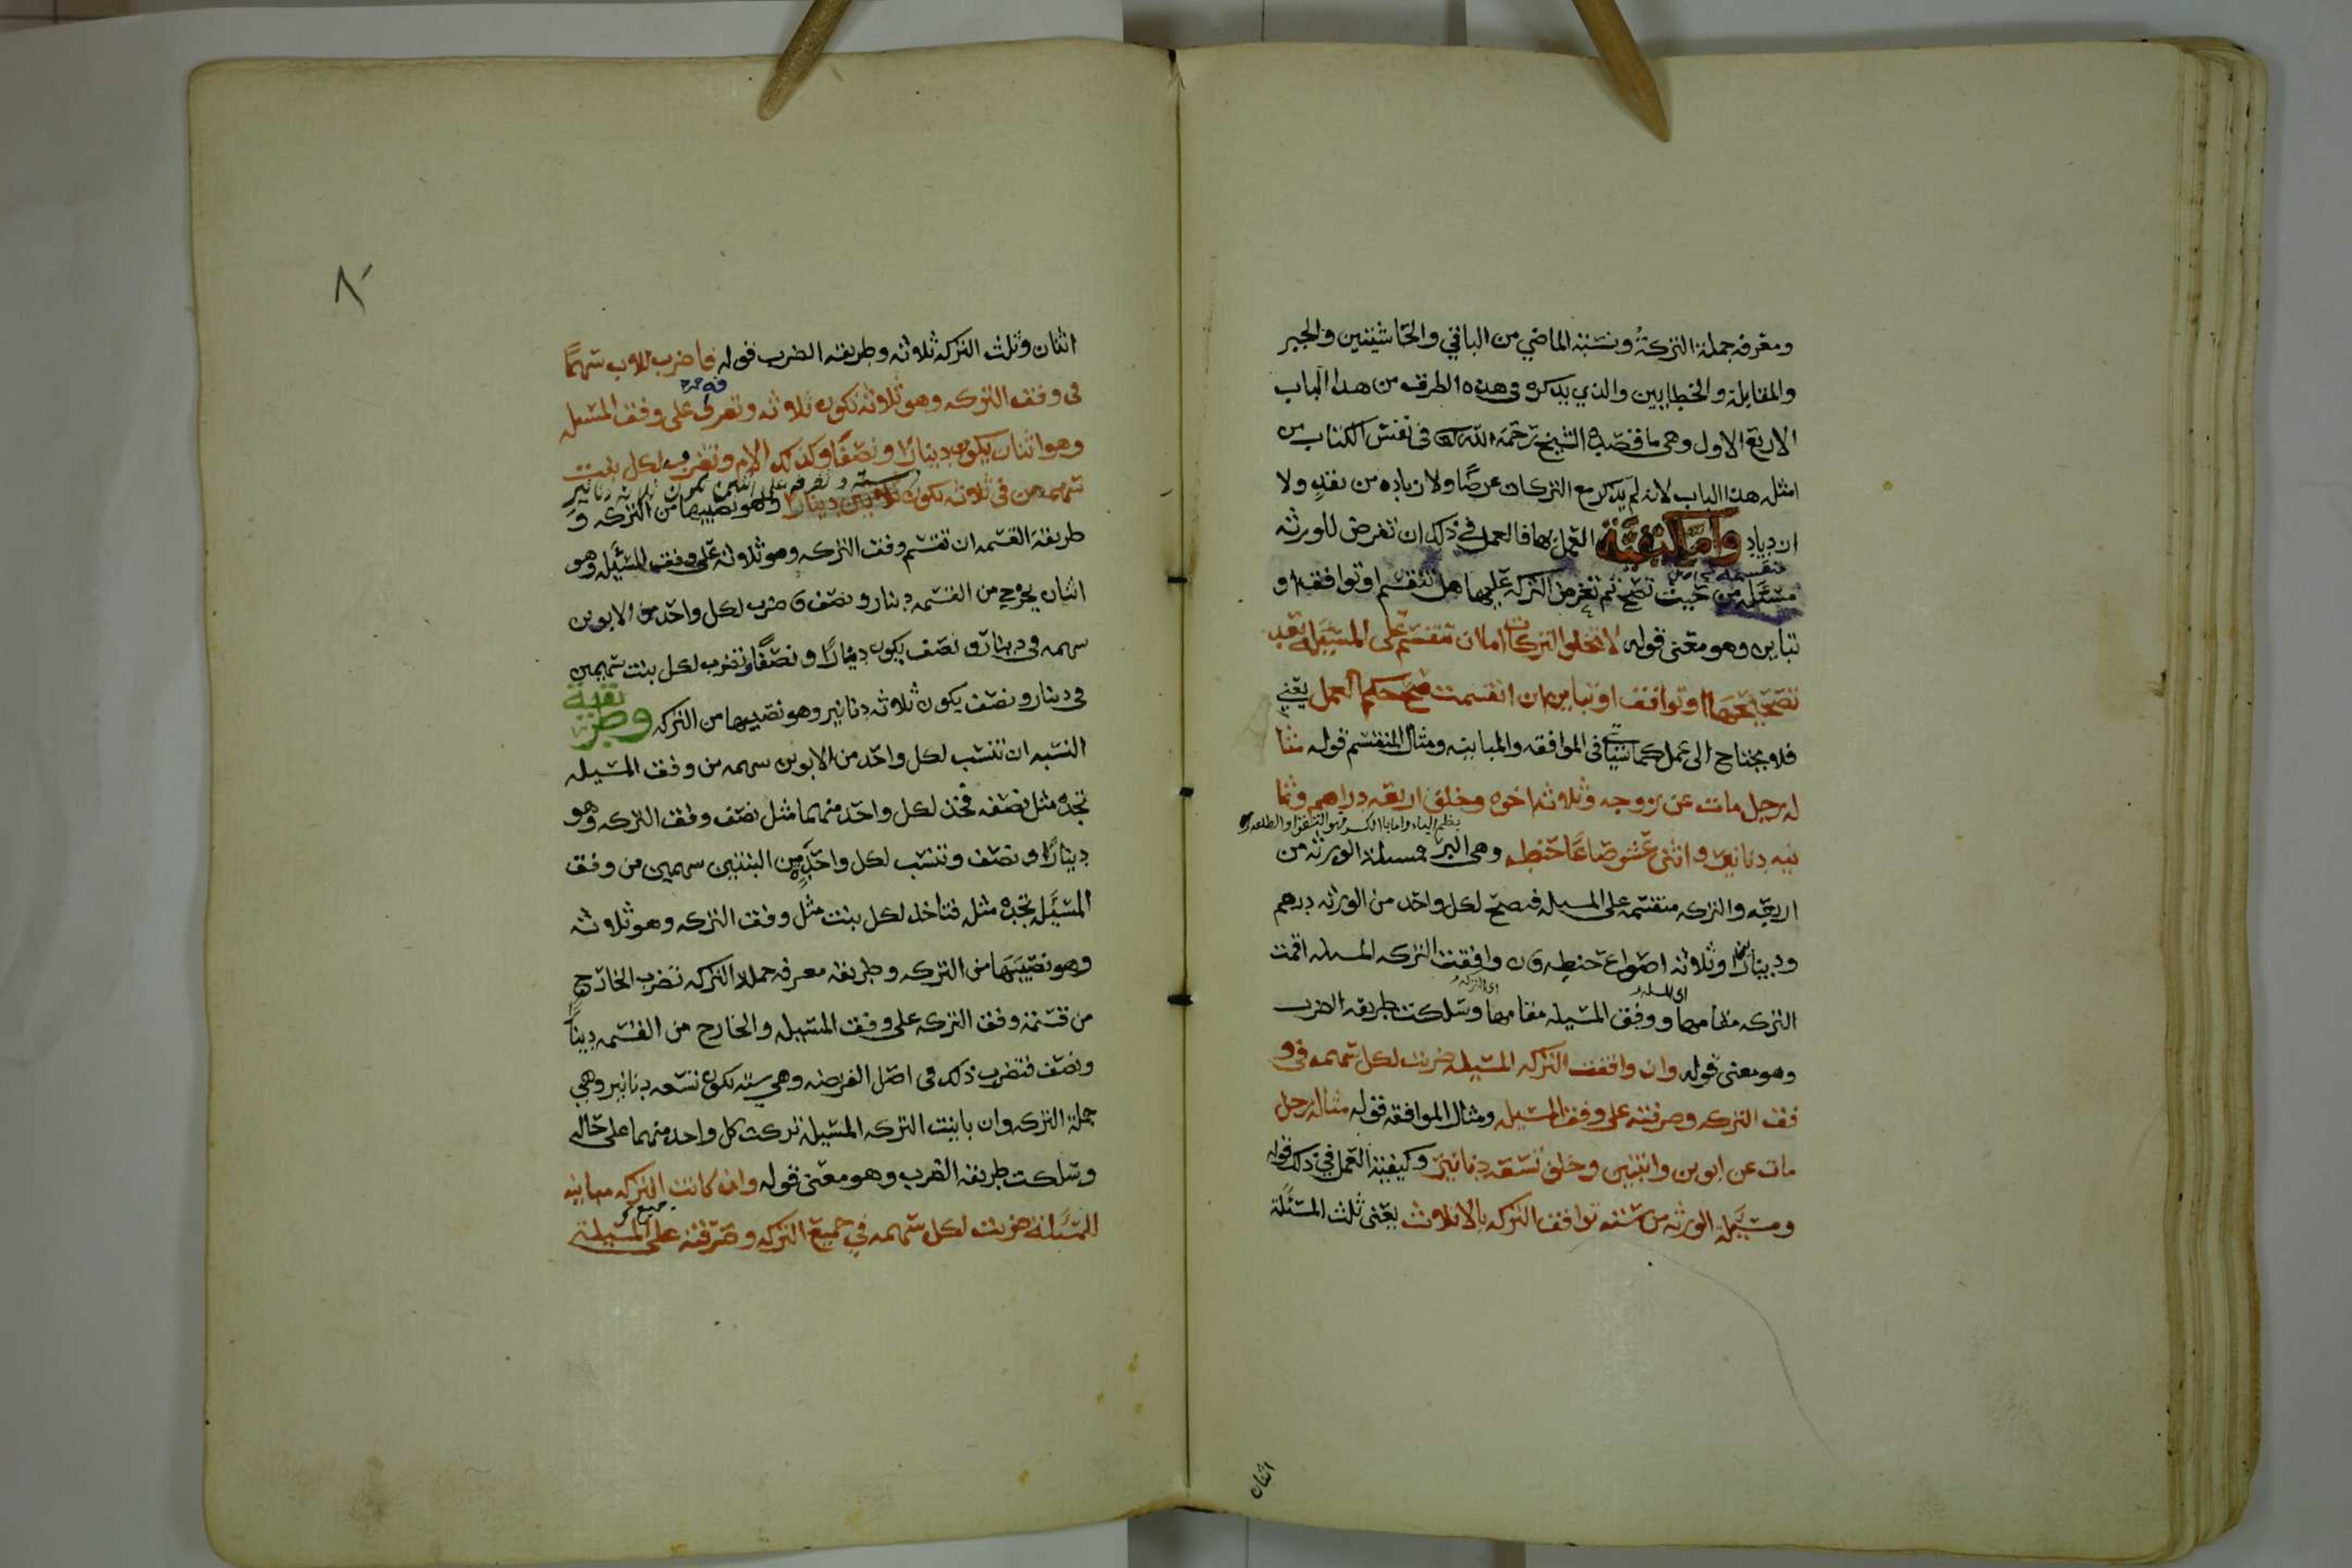 ومعرفه جملة التركة ونسبة الماضي من الباقي والحاشيتين والجبر
والمقابلة والخطايين والذي يذكره في هذه الطرق من هذا الباب
الاربع الاول وهي ما فصله الشيخ رحمة الله في نفس الكتاب من
امثله هذا الباب لانه لم يذكر مع التركات عرضًا ولا زياده من نقد ولا
ازدياد واما كيفية العمل بها فالعمل في ذلك ان تفرض للورثه
منقسمه
مسئله من حيث تصح ثم تعرض التركه عليها هل تنقسم او توافقه او
تباين وهو معنى قوله لا تخلوا التركات اما ان تنقسم على المسئله بعد
تصحيحها او توافق او تباين فان انقسمت صح حكم العمل يعني
فلا يحتاج الى عمل كما سياتي في الموافقه والمباينه ومثال المنقسم قوله مثا
له رجل مات عن زوجه وثلاثه اخوه وخلف اربعه دراهم وثما
نيه دنانير واثنى عشر صاعًا حنطه وهي البر فمسئلة الورثه من
اربعه والتركه منقسمه على المسيله فيصح لكل واحد من الورثه درهم
ودينارا وثلاثه اصواع حنطه وان وافقت التركه المسيله اقمت
اي المسيله
اي التركه
التركه مقامها ووفق المسيله مقامها وسلكت طريقه الضرب
وهو معنى قوله وان وافقت التركه المسيله ضربت لكل سهمه في و
فق التركه وصرفته على وفق المسيله ومثال الموافقه قوله مثاله رجل
مات عن ابوين وابنتين وخلف تسعه دنانير وكيفية العمل في ذلك قوله
ومسيلة الورثه من سته توافق التركه بالاثلاث يعني ثلث المسئلة
اثنان
٨٠
اثنان وثلث التركه ثلاثه وطريقه الضرب قوله فاضرب للاب سهمًا
في وفق التركه وهو ثلاثه تكون ثلاثه وتصرفه على وفق المسيله
وهو اثنان يكون دينارًا ونصفًا وكذلك الام وتضرب لكل بنت
سته وتصرفه على اثنين تكون ثلاثه دنانير
سهمين في ثلاثه تكون وهو نصيبها من التركه و
طريقة القسمه ان تقسم وفق التركه وهو ثلاثه على وفق المسئله وهو
اثنان يخرج من القسمه دينار ونصف فتضرب لكل واحد من الابوين
سهمه في دينار ونصف يكون دينارًا ونصفًا وتضرب لكل بنت سهمين
في دينار ونصف يكون ثلاثه دنانير وهو نصيبها من التركه وطريقة
النسبه ان تنسب لكل واحد من الابوين سهمه من وفق المسيله
تجده مثل نصفه فخذ لكل واحد منهما مثل نصف وفق التركه وهو
دينارًا ونصف وتنسب لكل واحدة من البنتين سهمين من وفق
المسئله تجده مثله فتاخذ لكل بنت مثل وفق التركه وهو ثلاثه
وهو نصيبها من التركه وطريقه معرفه جملة التركه تضرب الخارج
من قسمة وفق التركه على وفق المسيله والخارج من القسمه دينارًا
ونصف فتضرب ذلك في اصل الفريضه وهي سته تكون تسعه دنانير وهي
جملة التركه وان باينت التركه المسيله تركت كل واحد منهما على حاله
وسلكت طريقه الضرب وهو معنى قوله وان كانت التركه مباينه
جميع
للمسئلة ضربت لكل سهمه في جميع التركه وصرفته على المسيلة